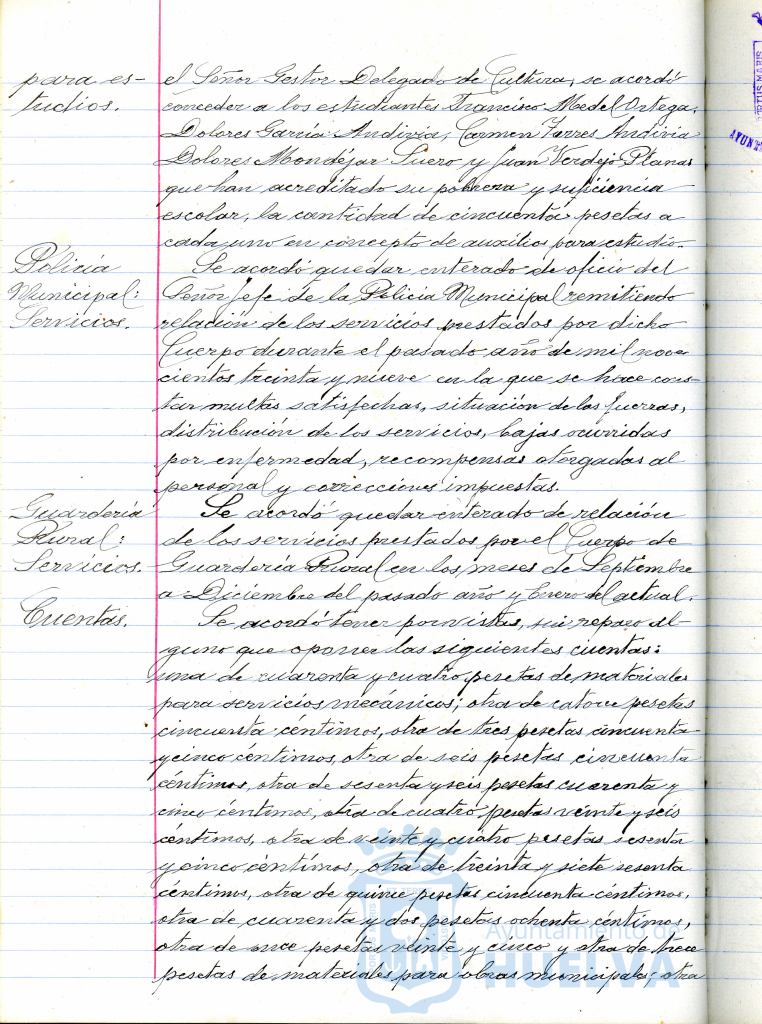 para es-
tudios.
el Señor Gestor Delegado de Cultura, se acordó
conceder a los estudiantes Francisco Medel Ortega,
Dolores García Andivia, Carmen Torres Andivia
Dolores Mondéjar Suero y Juan Verdejo Planas
que han acreditado su pobreza y suficiencia
escolar, la cantidad de cincuenta pesetas a
cada uno en concepto de auxilios para estudio.-
Policía
Municipal:
Servicios.
Se acordó quedar enterado de oficio del
Señor Jefe de la Policía Municipal remitiendo
relación de los servicios prestados por dicho
Cuerpo durante el pasado año de mil nove
cientos treinta y nueve en la que se hace cons-
tar multas satisfechas, situación de las fuerzas,
distribución de los servicios, bajas ocurridas
por enfermedad, recompensas otorgadas al
personal y correcciones impuestas.
Guardería
Rural:
Servicios.-
Se acordó quedar enterado de relación
de los servicios prestados por el Cuerpo de
Guardería Rural en los meses de Septiembre
a Diciembre del pasado año y Enero del actual.
Cuentas.
Se acordó tener por vistas, sin reparo al-
guno que oponer las siguientes cuentas:
una de cuarenta y cuatro pesetas de materiales
para servicios mecánicos; otra de catorce pesetas
cincuenta céntimos, otra de tres pesetas cincuenta
y cinco céntimos, otra de seis pesetas cincuenta
céntimos, otra de sesenta y seis pesetas cuarenta y
cinco céntimos, otra de cuatro pesetas veinte y seis
céntimos, otra de veinte y cuatro pesetas sesenta
y cinco céntimos, otra de treinta y siete sesenta
céntimos, otra de quince pesetas cincuenta céntimos,
otra de cuarenta y dos pesetas ochenta céntimos,
otra de once pesetas veinte y cinco y otra de trece
pesetas de materiales para obras municipales; otra
Ayuntamiento de
HUELVA